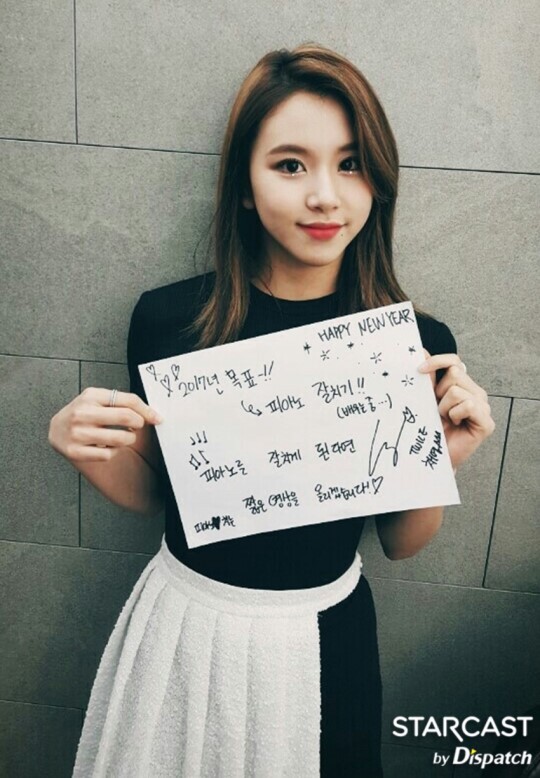 HAPPY NEW YEAR
2017년 목표-!!
피아노 잘치기!!
(배우는 중...)
피아노를 잘치게 된다면
짧은 영상을 올리겠습니다!
TWICE
채영
STARCAST
by Dispatch